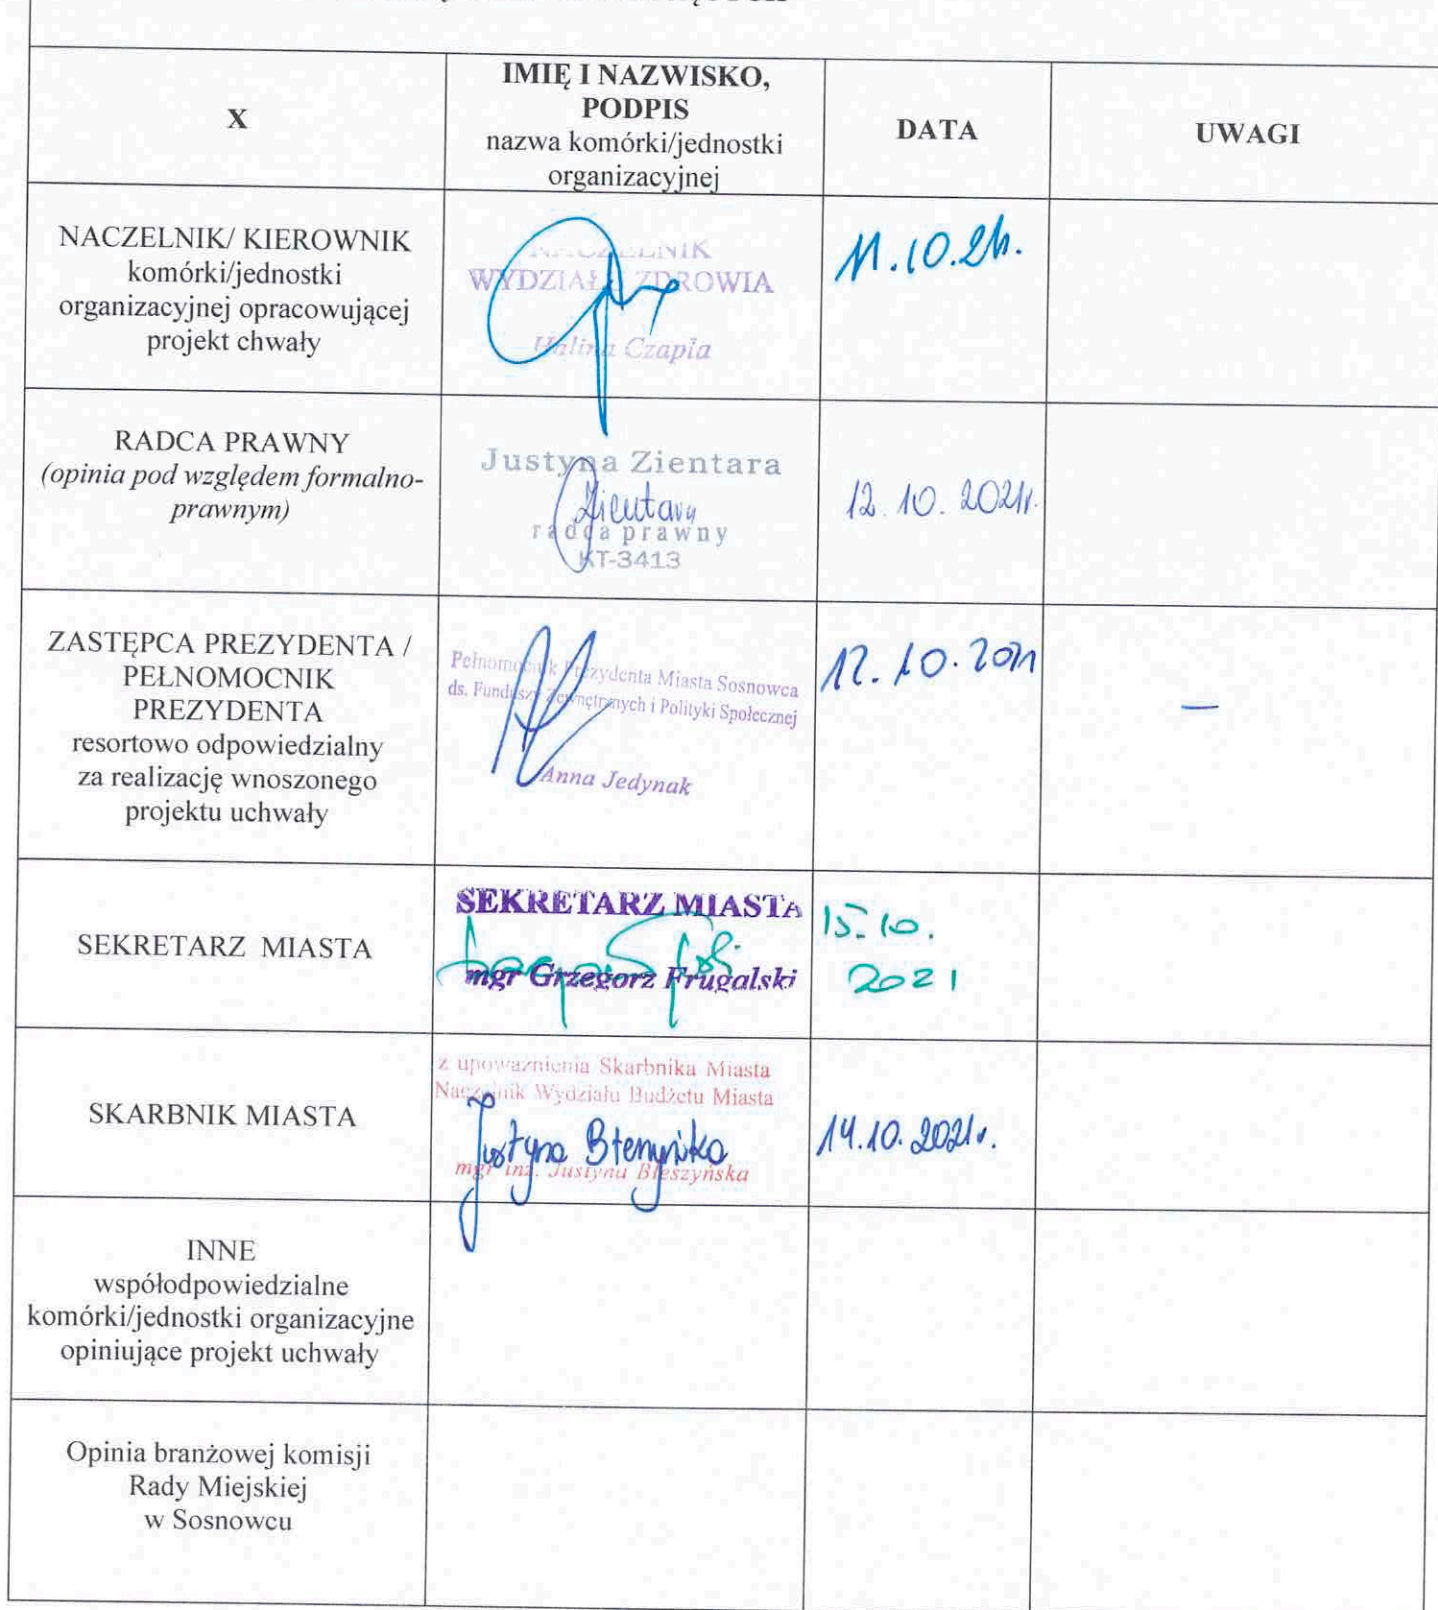 X
IMIĘ I NAZWISKO,
PODPIS
nazwa komórki/jednostki
organizacyjnej
DATA
UWAGI
NACZELNIK/ KIEROWNIK
komórki/jednostki
organizacyjnej opracowującej
projekt chwały
NACZELNIK
WYDZIAŁU ZDROWIA
Halina Czapla
11.10.21r.
RADCA PRAWNY
(opinia pod względem formalno-
prawnym)
Justyna Zientara
Zientara
radca prawny
KT-3413
12.10.2021r.
ZASTĘPCA PREZYDENTA /
PEŁNOMOCNIK
PREZYDENTA
resortowo odpowiedzialny
za realizację wnoszonego
projektu uchwały
Pełnomocnik Prezydenta Miasta Sosnowca
ds. Funduszy Zewnętrznych i Polityki Społecznej
Anna Jedynak
12.10.2021
—
SEKRETARZ MIASTA
SEKRETARZ MIASTA
mgr Grzegorz Frugalski
15.10.
2021
SKARBNIK MIASTA
z upoważnienia Skarbnika Miasta
Naczelnik Wydziału Budżetu Miasta
Justyna Błeszyńska
mgr inż. Justyna Błeszyńska
14.10.2021r.
INNE
współodpowiedzialne
komórki/jednostki organizacyjne
opiniujące projekt uchwały
Opinia branżowej komisji
Rady Miejskiej
w Sosnowcu